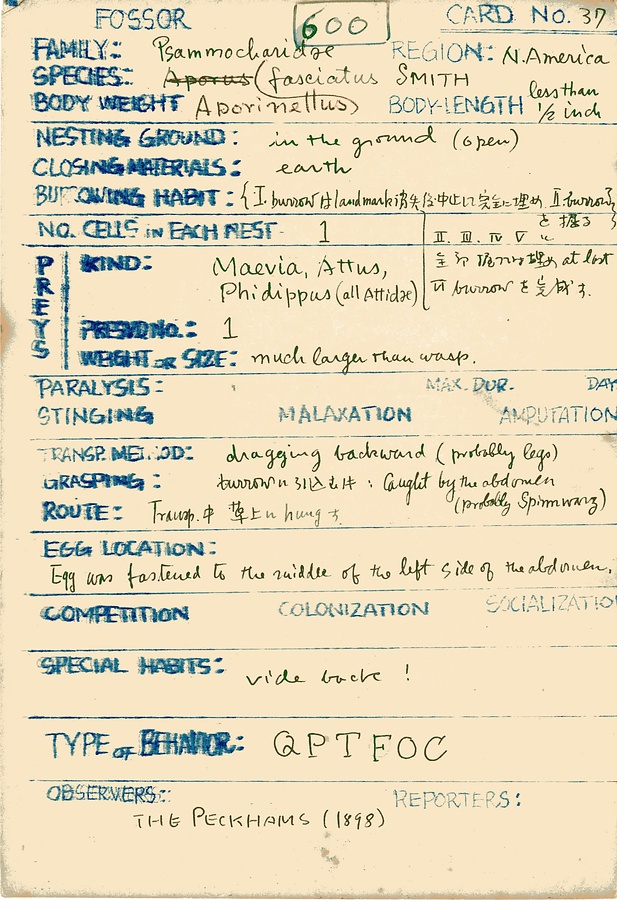 FOSSOR 600 CARD No. 37
FAMILY: Psammocharidae REGION: N. America
SPECIES: Aporus (fasciatus SMITH
BODY WEIGHT Aporinellus) BODY-LENGTH less than 1/2 inch
NESTING GROUND: in the ground (open)
CLOSING MATERIALS: earth
BURROWING HABIT: { I. burrowはlandmark消失後中止して完全に埋め II burrow
を掘る
NO. CELLS IN EACH NEST 1 II. III. IV V 〃
PREYS KIND: Maevia, Attus, 全部掘っては埋め at last
Phidippus (all Attidae) VI burrow を完成す.
PREYD NO.: 1
WEIGHT OR SIZE: much larger than wasp.
PARALYSIS: MAX. DUR. DAY
STINGING MALAXATION AMPUTATION
TRANSP. METHOD: dragging backward (probably legs)
GRASPING: burrowに引込む件: Caught by the abdomen
(probably Spinnwarz)
ROUTE: Transp. 中 草上に hung す
EGG LOCATION:
Egg was fastened to the middle of the left side of the abdomen.
COMPETITION COLONIZATION SOCIALIZATIO
SPECIAL HABITS: vide backe !
TYPE OF BEHAVIOR: QPTFOC
OBSERVERS: REPORTERS:
THE PECKHAMS (1898)